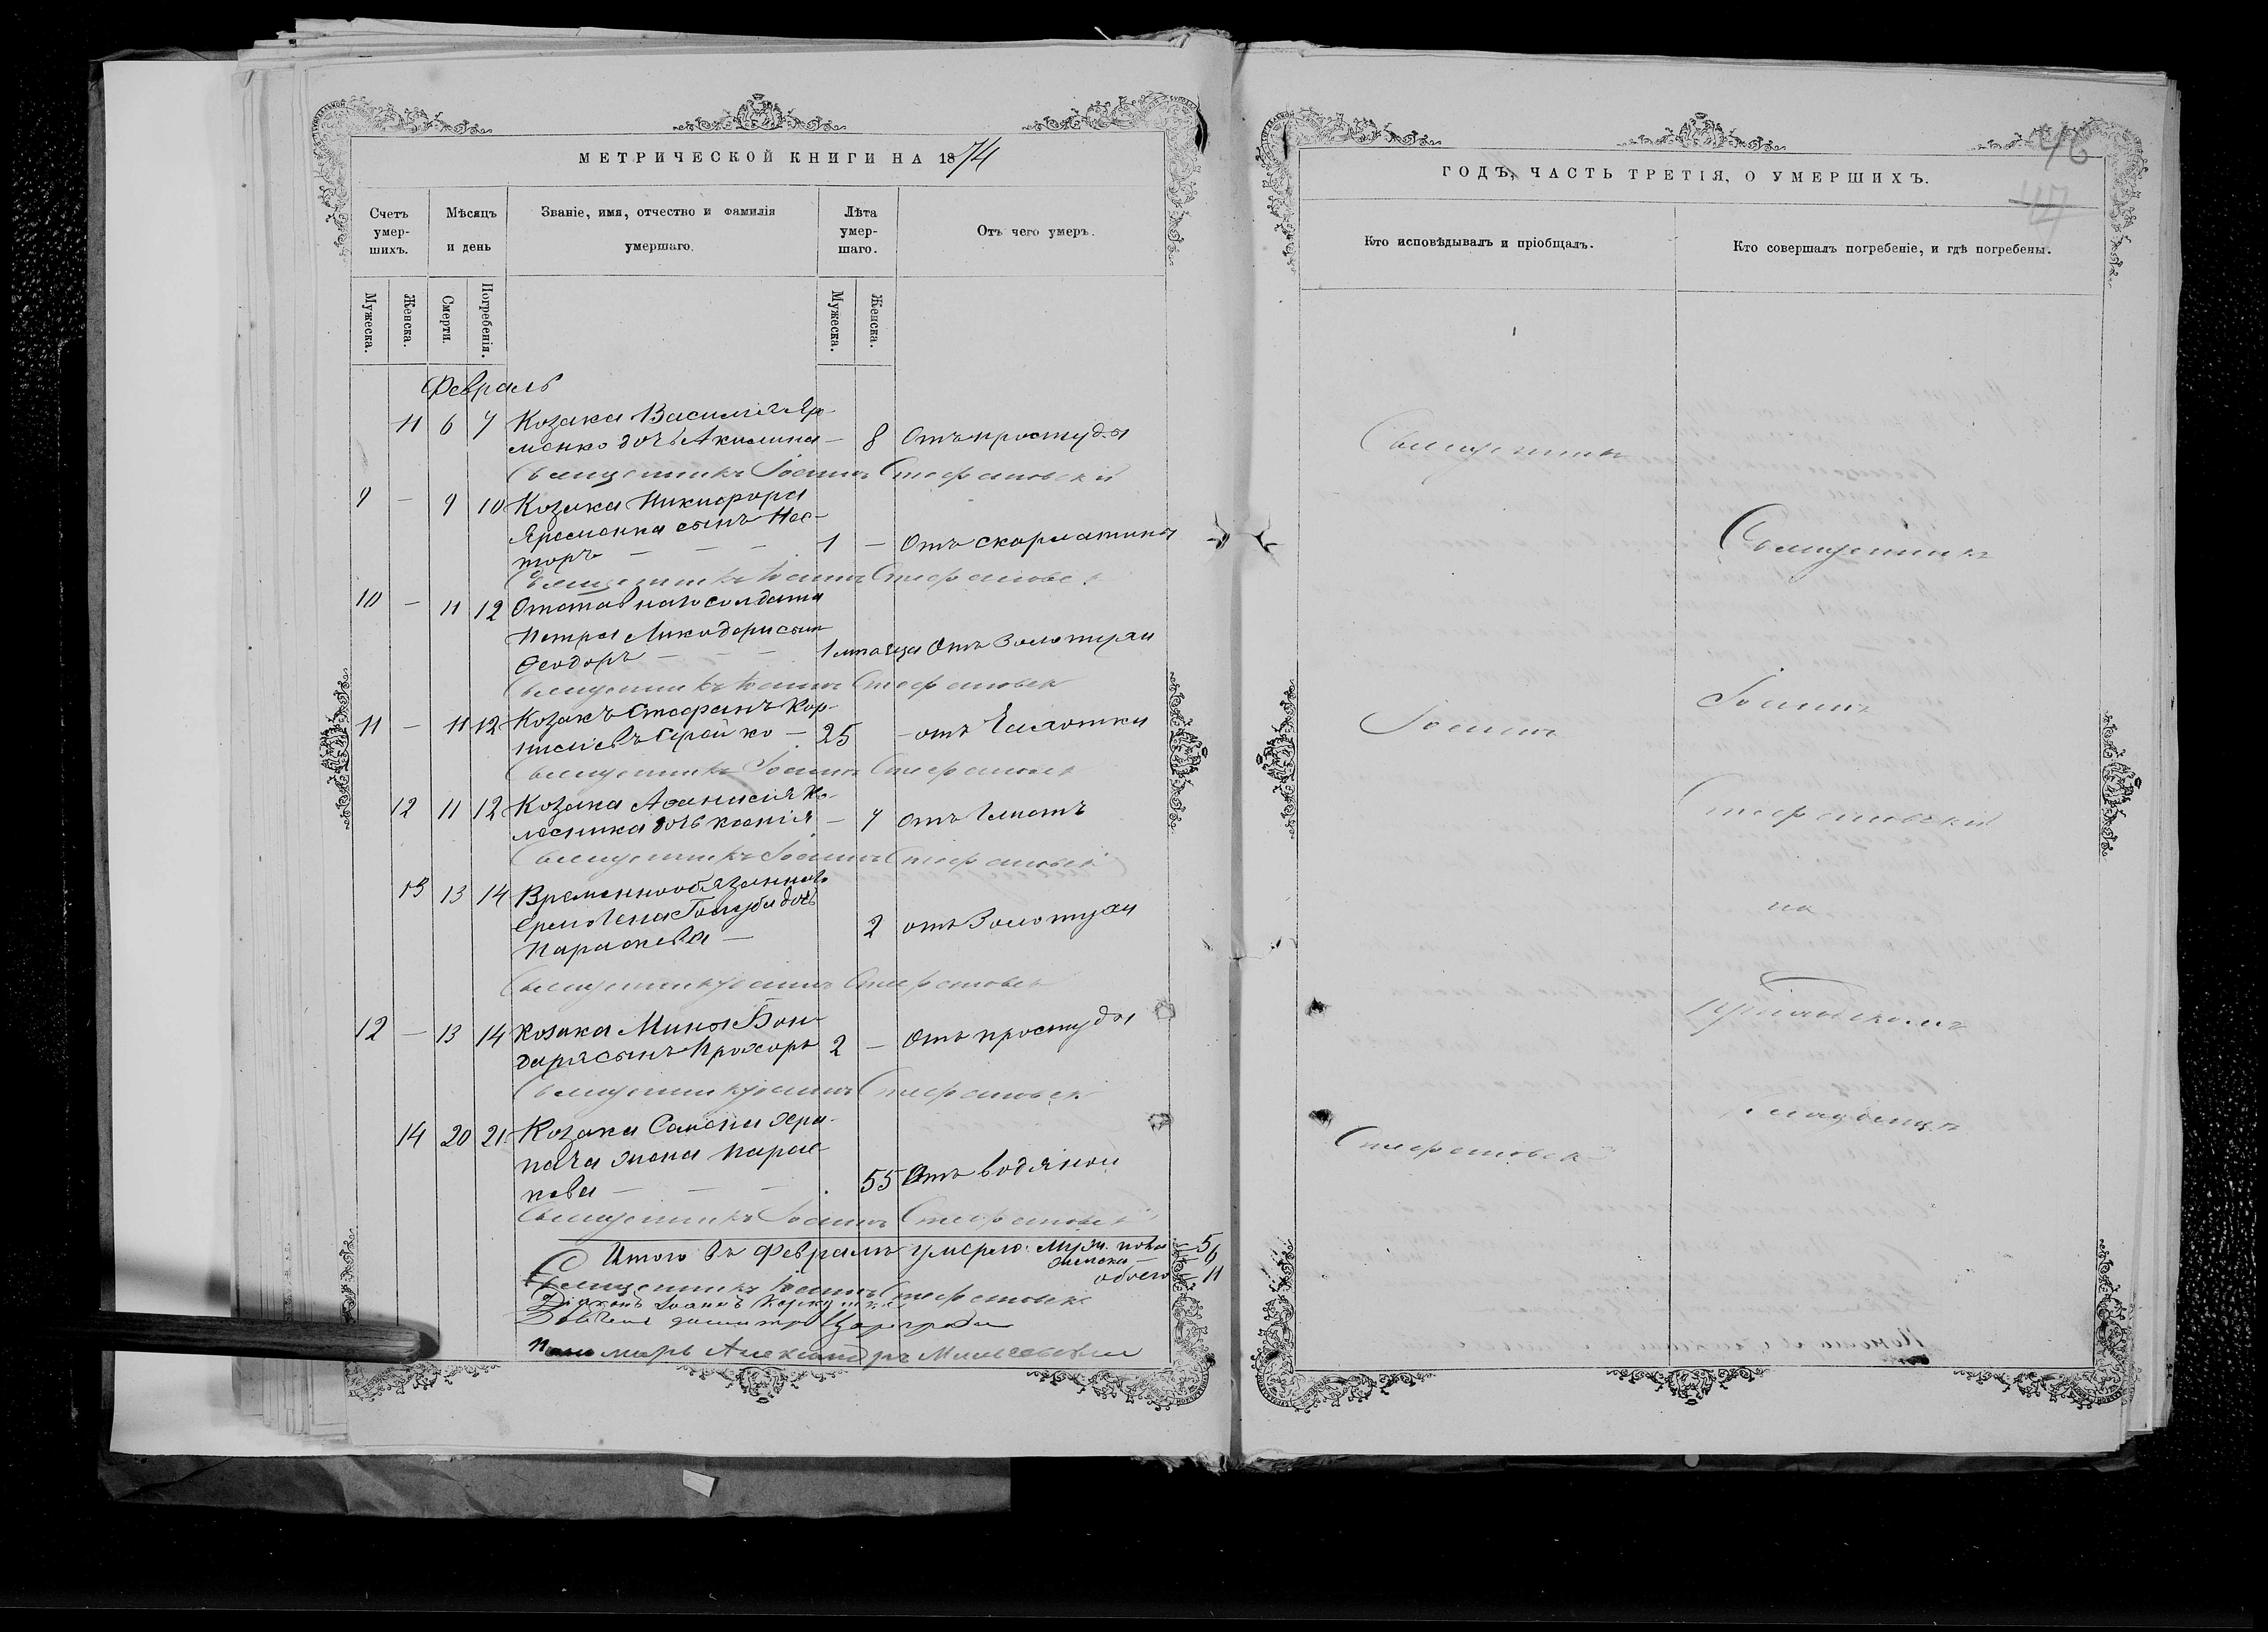 МЕТРИЧЕСКОЙ КНИГИ НА 1874
Счетъ умер-шихъ.
Мѣсяцъ и день
Званіе, имя, отчество и фамилія умершаго.
Лѣта умер-шаго.
Отъ чего умеръ.
Мужеска.
Женска.
Смерти.
Погребенія.
Мужеска.
Женска.
Февраль
11 6 7 Козака Василія Яре-
менко дочь Акилина — 8 Отъ простуды
Священникъ Іоаннъ Стефановскій
9 — 9 10 Козака Никифора
Яременка сынъ Нес-
торъ — — — 1 — Отъ скарлатины
Священникъ Іоаннъ Стефановск
10 — 11 12 Отставнаго солдата
Петра сынъ
Феодоръ — — 1 мѣсяца Отъ Золотухи
Священникъ Іоаннъ Стефановск
11 — 11 12 Козакъ Стефанъ Кор-
ниліевъ — 25 — отъ Чахотки
Священникъ Іоаннъ Стефановск
12 11 12 Козака Афанасія Ко-
лесника дочь Ксенія — 7 отъ
Священникъ Іоаннъ Стефановск
13 13 14 Временнообязаннаго
Голуба дочь
Параскева — 2 отъ Золотухи
Священникъ Іоаннъ Стефановск
12 — 13 14 Козака Мины Бон-
даря сынъ Прохоръ 2 — Отъ простуды
Священникъ Іоаннъ Стефановск
14 20 21 Козака
жена Парас-
кева — — — 55 Отъ водяной
Священникъ Іоаннъ Стефановск
Итого въ Февралѣ умерло: Муж. пола — 5
женска — 6
обоего — 11
Священникъ Іоаннъ Стефановск
Діаконъ Іоаннъ
Пономарь Александръ
46
47
ГОДЪ, ЧАСТЬ ТРЕТІЯ, О УМЕРШИХЪ.
Кто исповѣдывалъ и пріобщалъ.
Кто совершалъ погребеніе, и гдѣ погребены.
Священникъ
Священникъ
Іоаннъ
Іоаннъ
Стефановскій
на
приходскомъ
кладбищѣ
Стефановск